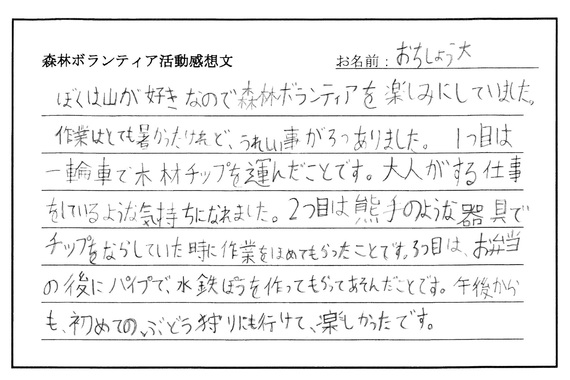 森林ボランティア活動感想文
お名前：おちしょう大
ぼくは山が好きなので森林ボランティアを楽しみにしていました。
作業はとても暑かったけれど、うれしい事が3つありました。1つ目は
一輪車で木材チップを運んだことです。大人がする仕事
をしているような気持ちになれました。2つ目は熊手のような器具で
チップをならしていた時に作業をほめてもらったことです。3つ目は、お弁当
の後にパイプで、水鉄ぽうを作ってもらってあそんだことです。午後から
も、初めてのぶどう狩りにも行けて、楽しかったです。